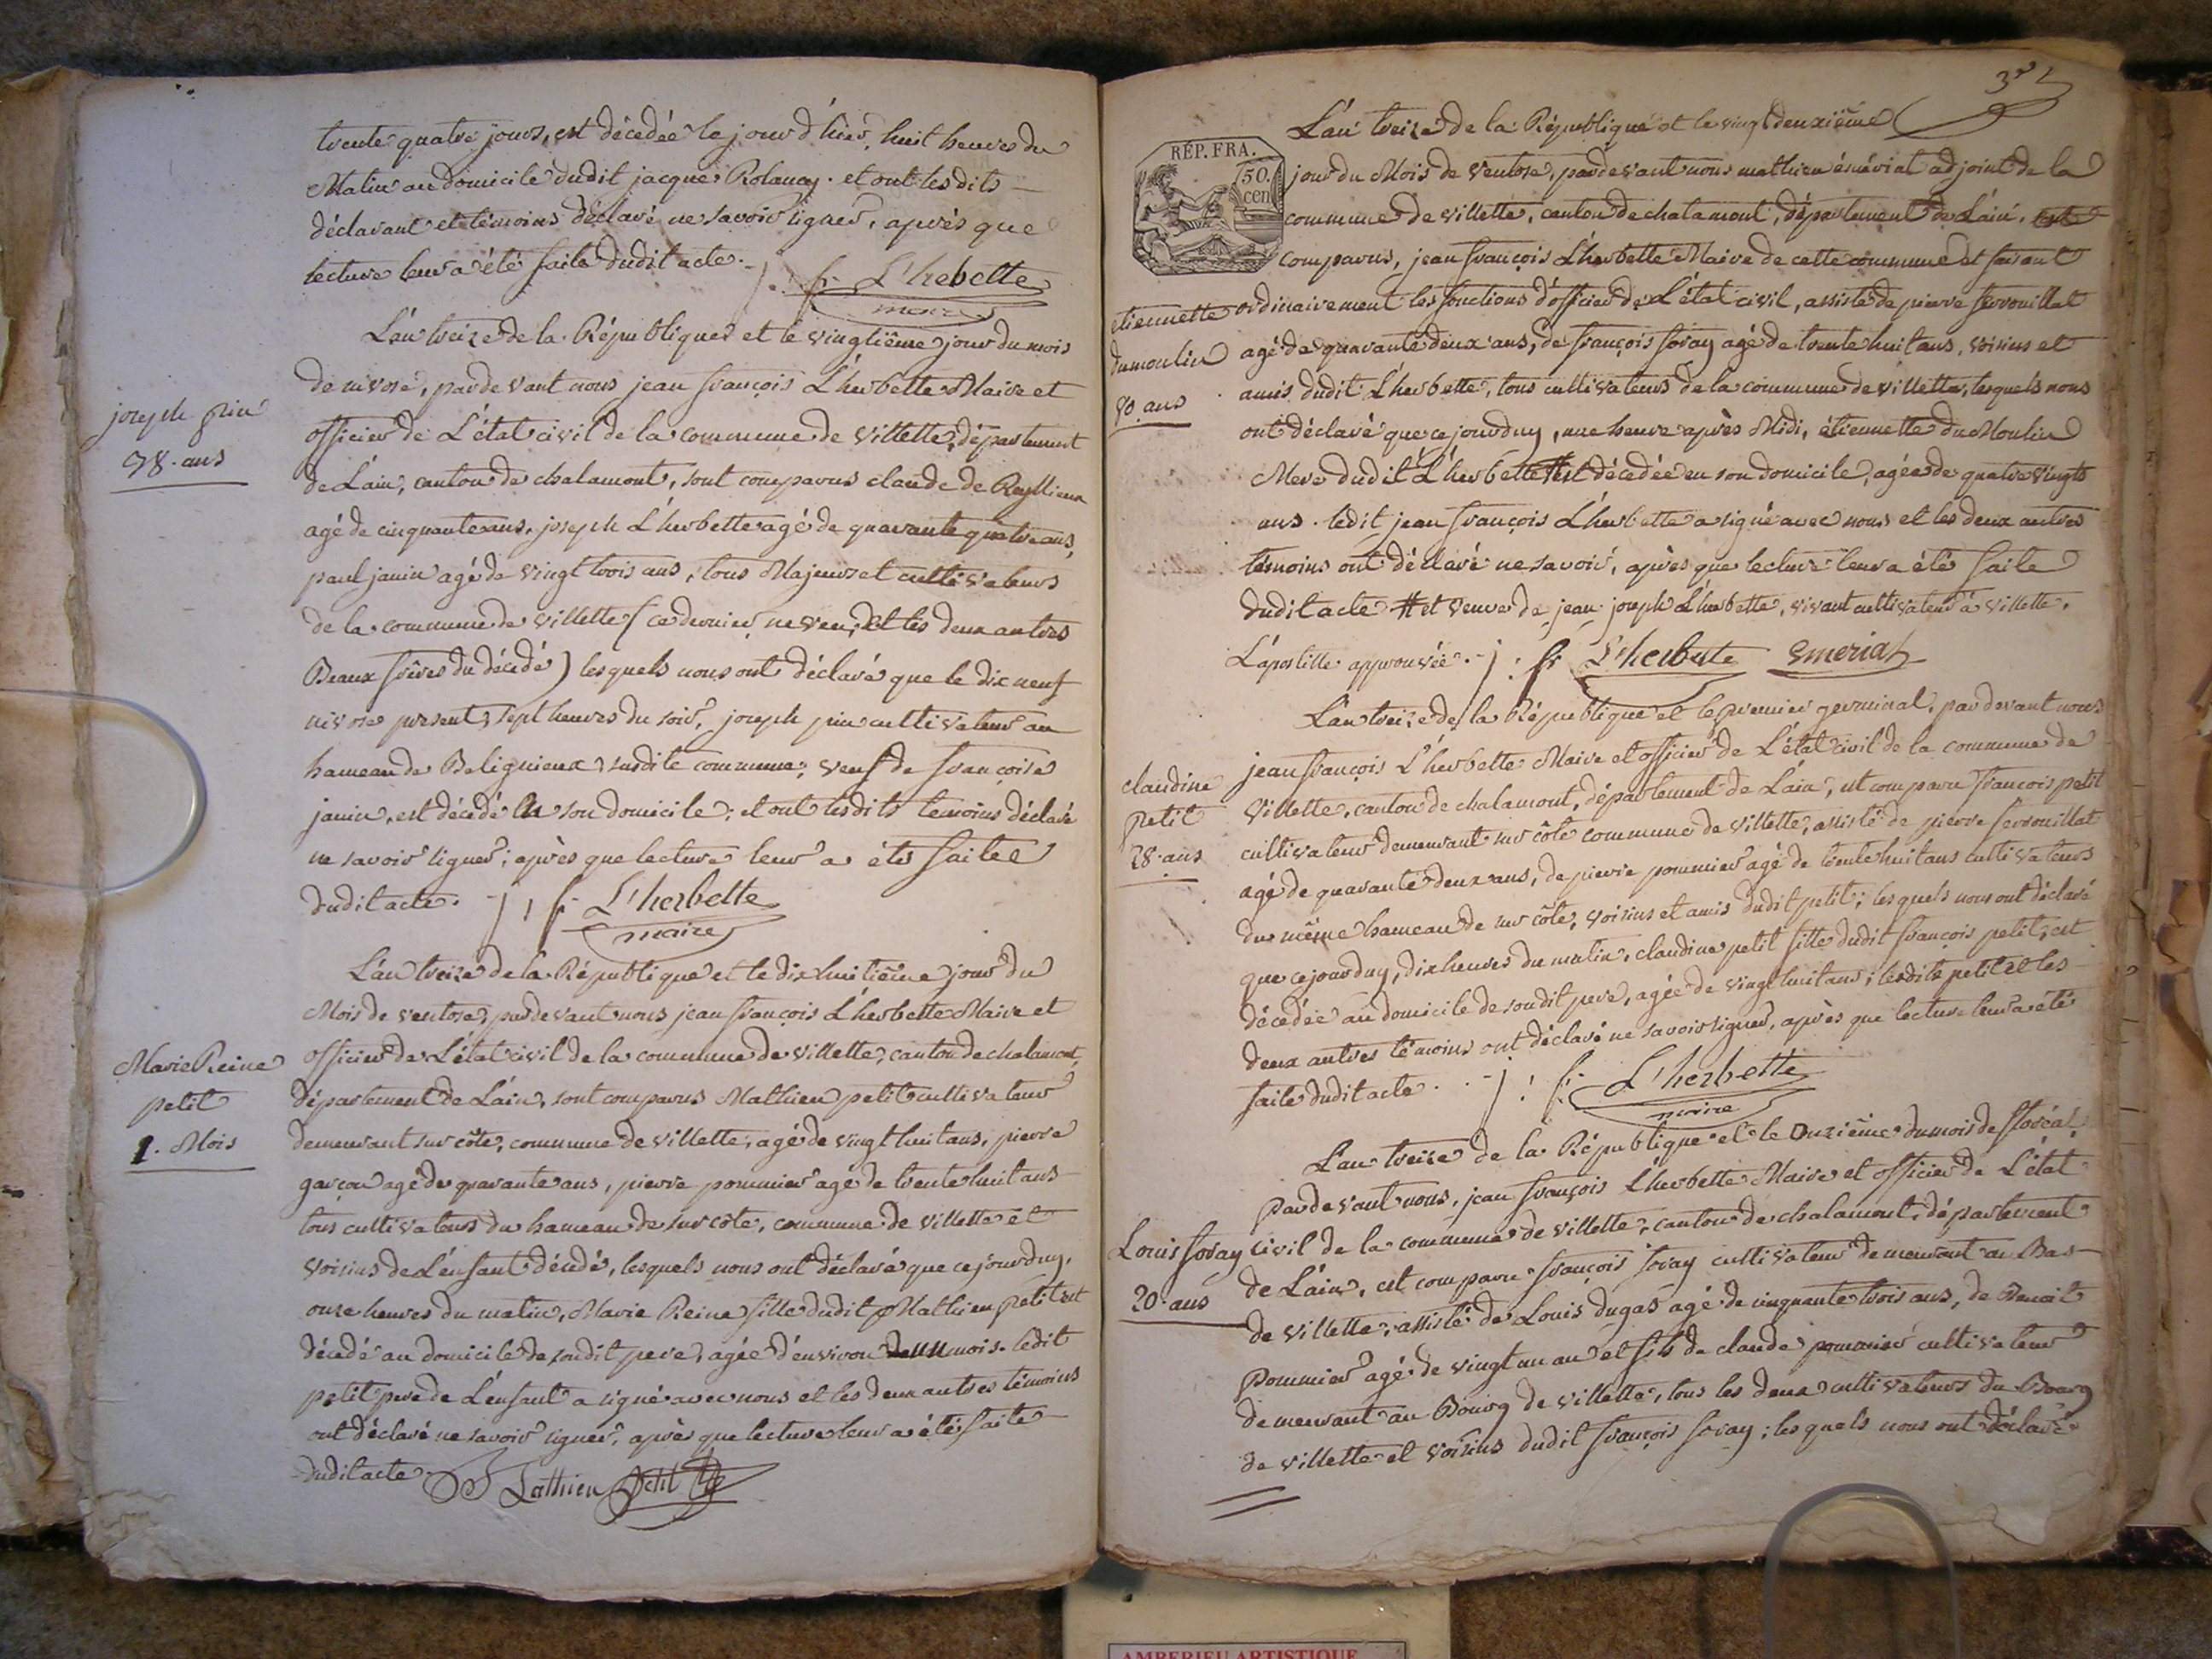 trente quatre jours, est décedée le jour d'hier, huit heures du
Matin au domicile dudit jacque Rolancy. et ont lesdits
déclarant et témoins déclaré ne savoir signer, après que
lecture leur a été faite dudit acte. j. fr. L'hebette
maire
L'an treize de la République et le vingtiême jour du mois
de nivose, pardevant nous jean françois L'herbette Maire et
joseph pin
officier de L'état civil de la commune de villette, département
78. ans
de L'ain, canton de chalamont, sont comparus claude de Reyllieux
agé de cinquante ans, joseph L'herbette agé de quarante quatre ans,
paul janin agé de vingt trois ans, tous Majeurs et cultivateurs
de la commune de villette (ce dernier neveu, et les deux autres
Beaux frères du décedé) lesquels nous ont déclaré que le dix neuf
nivose present, sept heures du soir, joseph pin cultivateur au
hameau de Belignieux, susdite commune, veuf de françoise
janin, est décedé en son domicile; et ont lesdits temoins déclaré
ne savoir signer; après que lecture leur a été faite
dudit acte. j. f. L'herbette
maire
L'an treize de la République et le dix huitiême jour du
Mois de ventose, pardevant nous jean françois L'herbette Maire et
Marie Reine
officier de L'état civil de la commune de villette, canton de chalamont,
petit
département de L'ain, sont comparus Mathieu petit cultivateur
1. Mois
demeurant sur côte, commune de villette, agé de vingt huit ans, pierre
garçon agé de quarante ans, pierre pommier agé de trente huit ans
tous cultivateurs du hameau de sur côte, commune de villette et
voisins de L'enfant décedé, lesquels nous ont déclaré que ce jourduy,
onze heures du matin, Marie Reine fille dudit Mathieu petit est
décedé au domicile de sondit pere, agée d'environ un mois. ledit
petit pere de L'enfant a signé avec nous et les deux autres témoins
ont déclaré ne savoir signer, après que lecture leur a été faite
dudit acte. Mathieu Petit
3
L'an treize de la République et le vingt deuxiême
RÉP. FRA.
50. cen
jour du Mois de ventose, pardevant nous mathieu émériat adjoint de la
commune de villette, canton de chalamont, département de L'ain, est
comparus, jean françois L'herbette Maire de cette commune et faisant
etiennette
ordinairement les fonctions d'officier de L'état civil, assisté de pierre ferrouillat
dumoulin
agé de quarante deux ans, de françois foray agé de trente huit ans, voisins et
80 ans
amis dudit L'herbette, tous cultivateurs de la commune de villette, lesquels nous
ont déclaré que ce jourduy, une heure après Midi, étiennette du Moulin
Mere dudit L'herbette # est décedée en son domicile, agée de quatre vingts
ans. ledit jean françois L'herbette a signé avec nous et les deux autres
témoins ont déclaré ne savoir, après que lecture leur a été faite
dudit acte # et veuve de jean joseph L'herbette, vivant cultivateur à villette.
L'apostille approuvée. j. fr L'herbette Emeriat
L'an treize de la République et le premier germinal, pardevant nous
jean françois L'herbette Maire et officier de L'état civil de la commune de
claudine
villette, canton de chalamont, département de L'ain, est comparu francois petit
petit
cultivateur demeurant sur côte commune de villette, assisté de pierre ferrouillat
28. ans
agé de quarante deux ans, de pierre pommier agé de trente huit ans cultivateurs
du même hameau de sur côte, voisins et amis dudit petit; lesquels nous ont déclaré
que ce jourduy, dix heures du matin, claudine petit fille dudit françois petit, est
décedée au domicile de sondit pere, agée de vingt huit ans; lesdits petit et les
deux autres témoins ont déclaré ne savoir signer, après que lecture leur a été
faite dudit acte. j. f. L'herbette
maire
L'an treize de la République et le Onziême du mois de floréal,
pardevant nous, jean françois L'herbette Maire et officier de L'état
Louis foray
civil de la commune de villette, canton de chalamont, département
20. ans
de L'ain, est comparu françois foray cultivateur demeurant au Bas
de villette, assisté de Louis dugas agé de cinquante trois ans, de Benoit
Pommier agé de vingt un an et fils de claude pommier cultivateur
demeurant au Bourg de villette, tous les deux cultivateurs du Bourg
de villette et voisins dudit françois foray; lesquels nous ont déclaré
AMBERIEU ARTISTIQUE